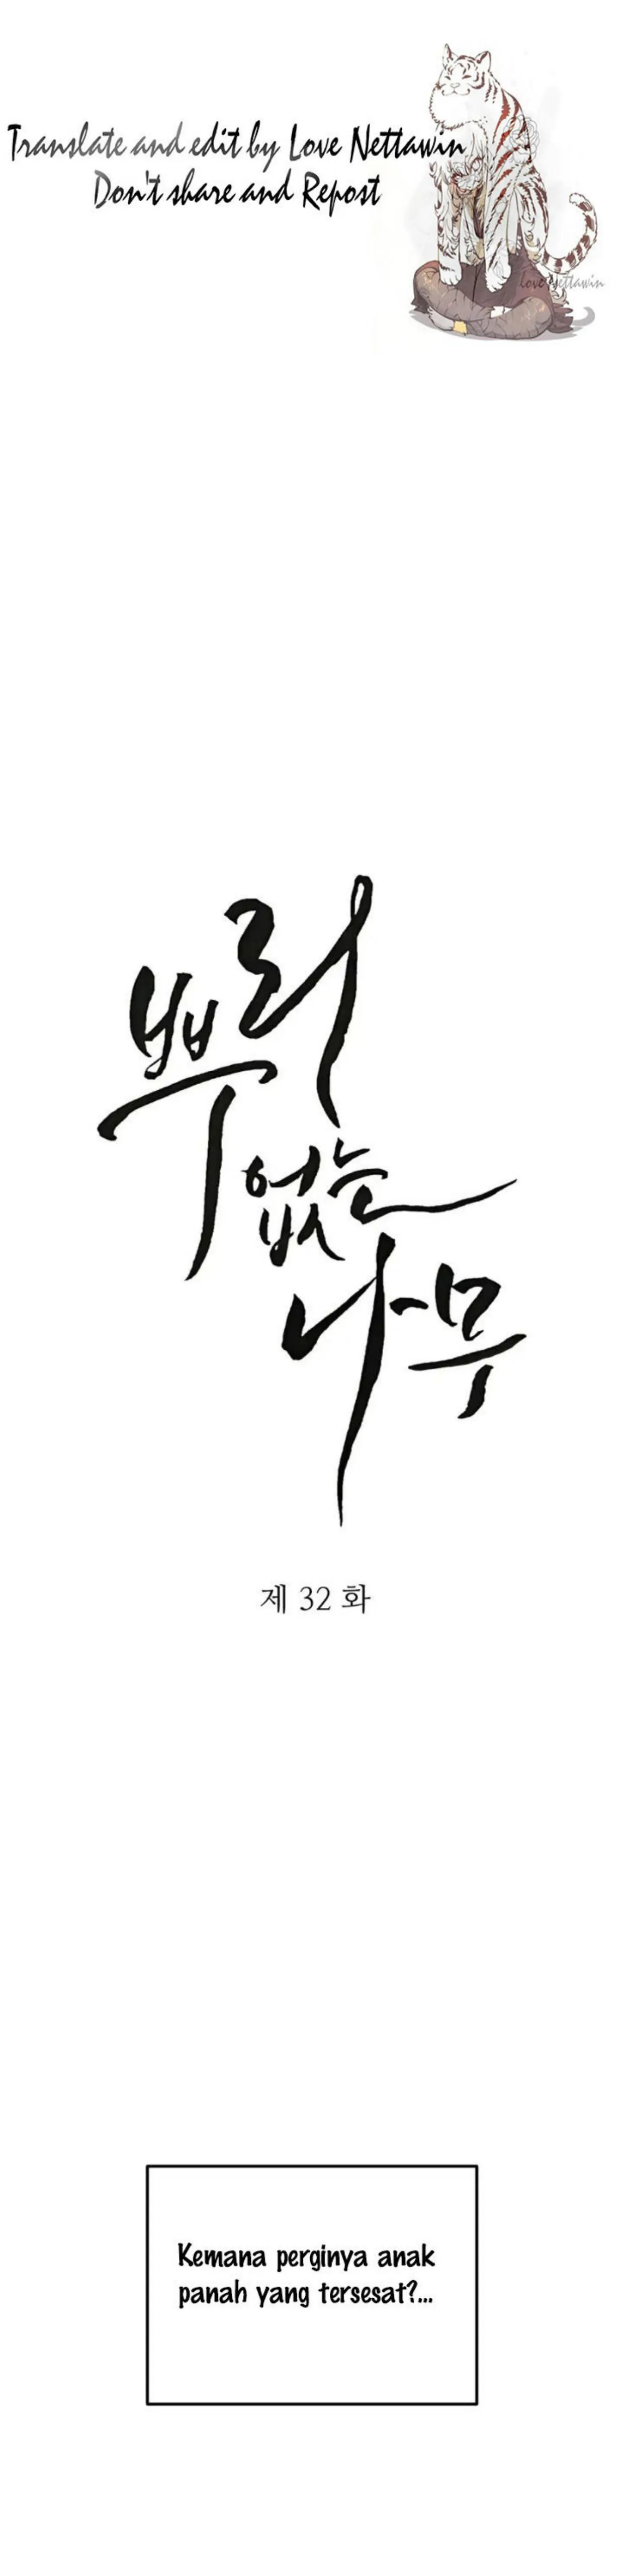 Translate and edit by Love Nettawin
Don't share and Repost
love Nettawin
뿌리
없는
나무
제 32 화
Kemana perginya anak
panah yang tersesat?...